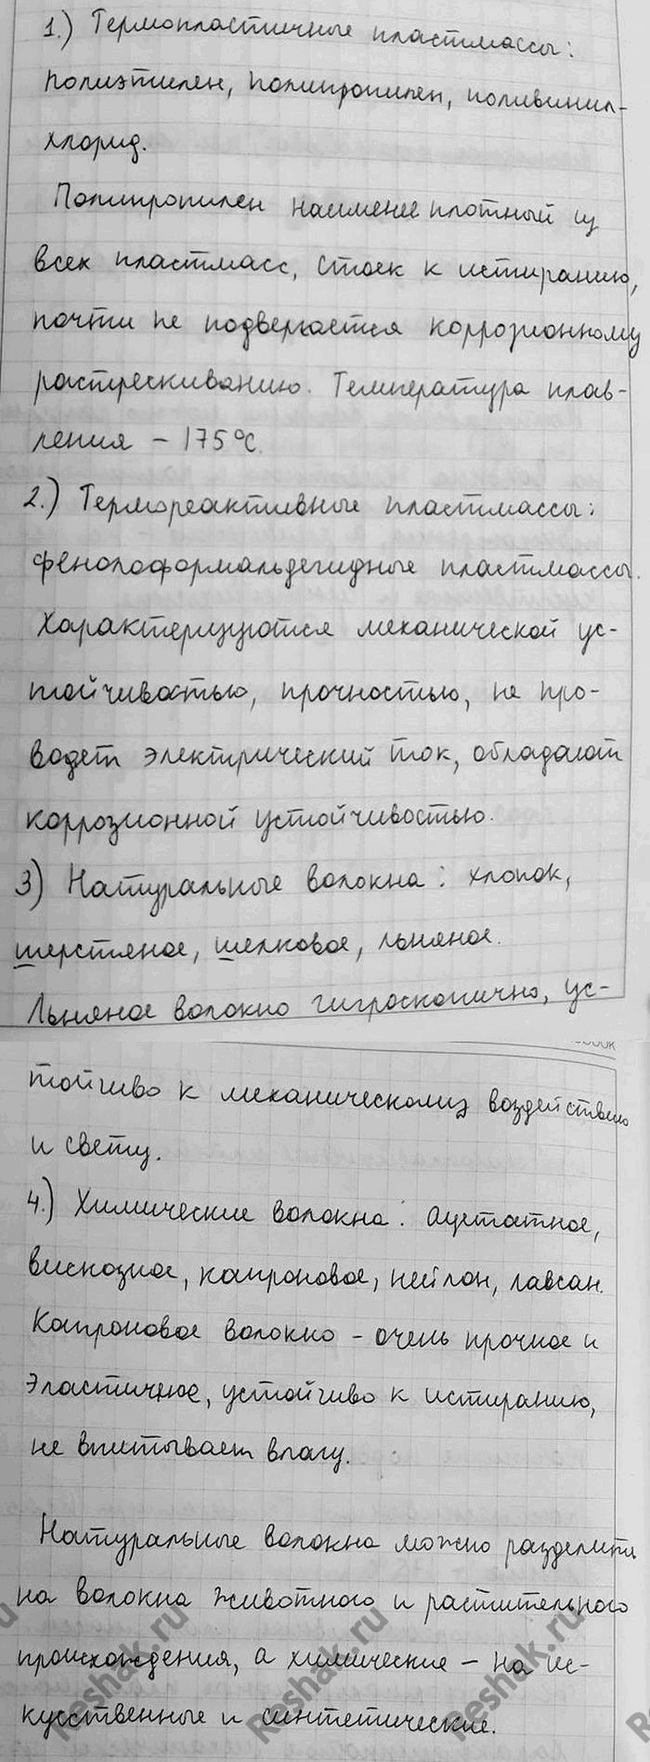 1.) Термопластичные пластмассы:
полиэтилен, полипропилен, поливинил-
хлорид.
Полипропилен наименее плотный из
всех пластмасс, стоек к истиранию,
почти не подвергается коррозионному
растрескиванию. Температура плав-
ления – 175°C.
2.) Термореактивные пластмассы:
фенолоформальдегидные пластмассы.
Характеризуются механической ус-
тойчивостью, прочностью, не про-
водят электрический ток, обладают
коррозионной устойчивостью.
3) Натуральные волокна: хлопок,
шерстяное, шелковое, льняное.
Льняное волокно гигроскопично, ус-
тойчиво к механическому воздействию
и свету.
4.) Химические волокна: ацетатное,
вискозное, капроновое, нейлон, лавсан.
Капроновое волокно – очень прочное и
эластичное, устойчиво к истиранию,
не впитывает влагу.
Натуральные волокна можно разделить
на волокна животного и растительного
происхождения, а химические – на ис-
кусственные и синтетические.
Reshak.ru
Reshak.ru
Reshak.ru